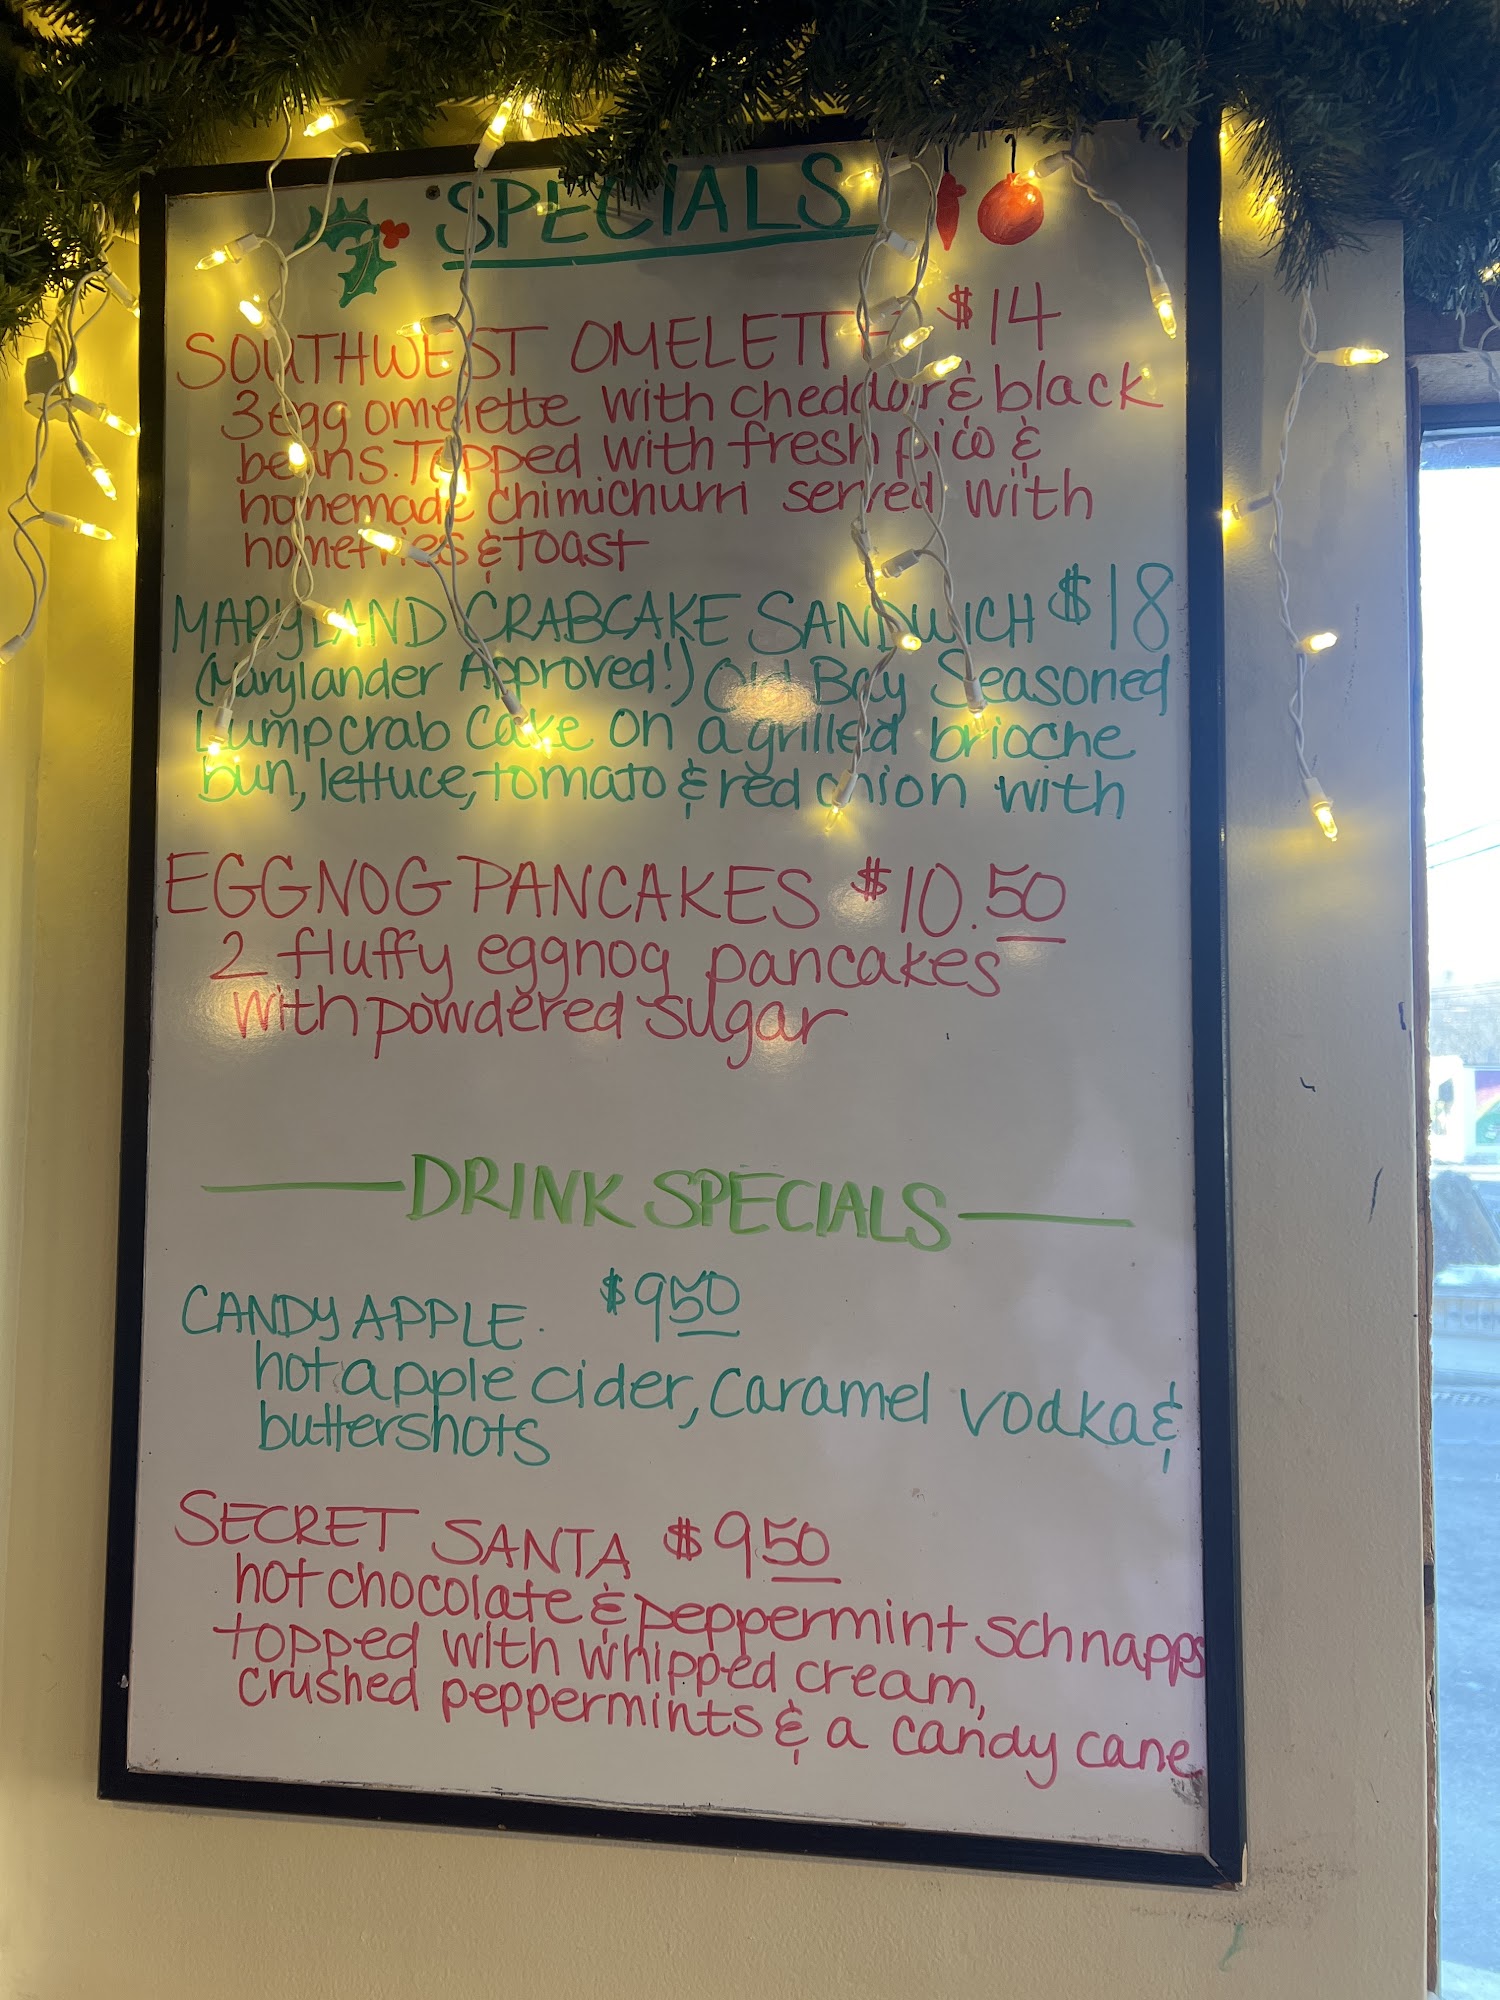 SPECIALS
SOUTHWEST OMELETTE $14
3 egg omelette with cheddar & black
beans. Topped with fresh pico &
homemade chimichurri served with
homefries & toast
MARYLAND CRABCAKE SANDWICH $18
(Marylander Approved!) Old Bay Seasoned
Lump crab cake on a grilled brioche
bun, lettuce, tomato & red onion with
EGGNOG PANCAKES $10.50
2 fluffy eggnog pancakes
with powdered sugar
DRINK SPECIALS
CANDY APPLE. $950
hot apple cider, caramel vodka &
buttershots
SECRET SANTA $9.50
hot chocolate & peppermint schnapps
topped with whipped cream,
crushed peppermints & a candy cane